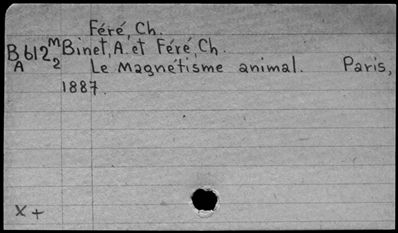 Féré, Ch.
B612 M2 Binet, A. et Féré, Ch.
A Le Magnétisme animal. Paris,
1887.
X +